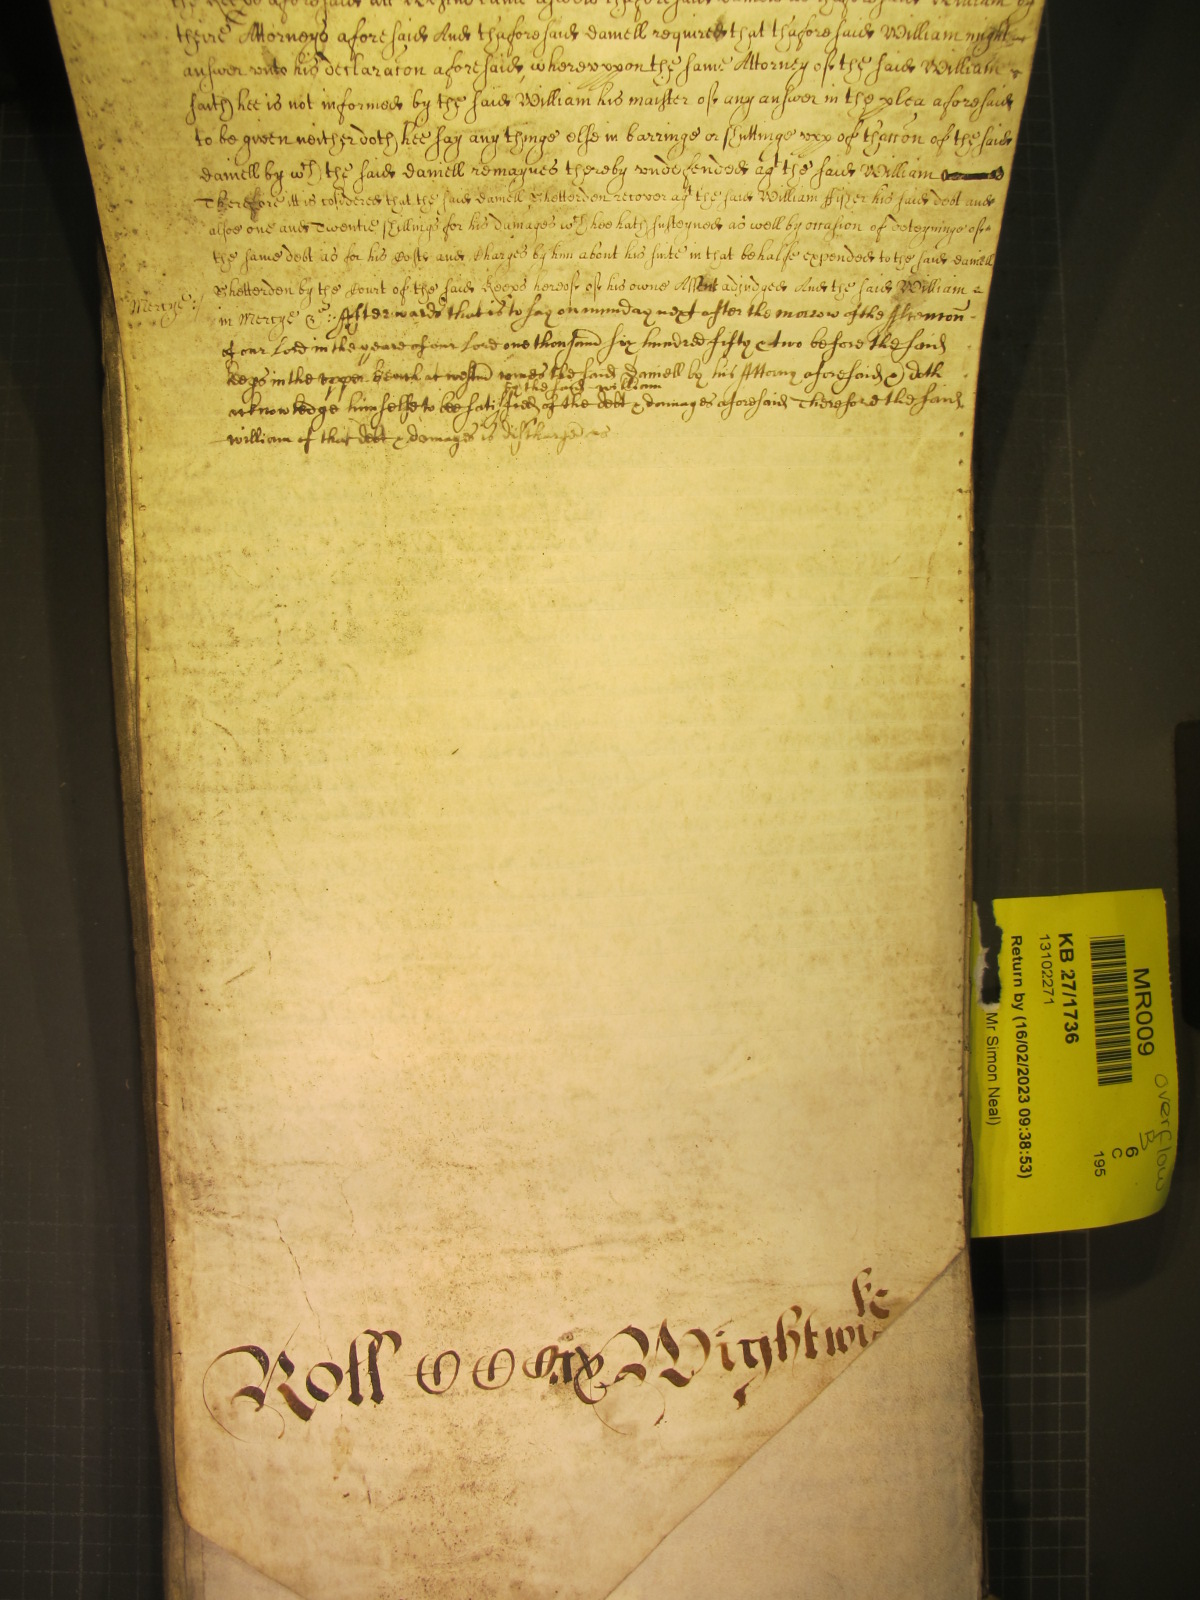 theire Attorneys aforesaid And thaforesaid Daniell requireth that thaforesaid William might
answer unto his declaracon aforesaid, whereuppon the same Attorney of the said William
saith hee is not informed by the said William his maister of any answer in the plea aforesaid
to be given neither doth hee say any thinge else in barringe or shuttinge upp of thaccon of the said
Daniell by wch the said Daniell remaynes thereby undefended agt the said William
Therefore itt is cosidered that the said Daniell Shetterden recover agt the said William ffisher his said debt and
alsoe one and Twentie shillings for his damages wch hee hath susteyned as well by occasion of deteyninge of
the same debt as for his Costs and Charges by him about his suite in that behalfe expended to the said Daniell
Shetterden by the Court of the said Keeps hereof of his owne Assent adjudged And the said William
Mercye
in Mercye &c: Afterwards that is to say on munday next after the morrow of the Ascencon
of our Lord in the yeare of our Lord one thousand six hundred fifty & two before the said
keeps in the upper bench at westm comes the said Daniell by his Attorny aforesaid & doth
by the said William
acknowledge himselfe to bee satisfied of the debt & damages aforesaid Therefore the said
William of that debt & damages is discharged
Roll CC Wightwicke
MR009
Overflow
B
6
C
195
KB 27/1736
13102271
Return by (16/02/2023 09:38:53)
Mr Simon Neal)